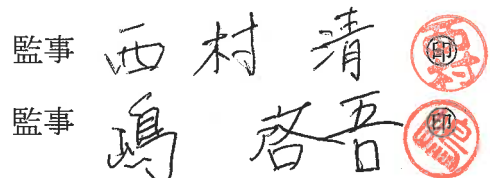 監事 西村 清 ㊞
監事 嶋 啓吾 ㊞